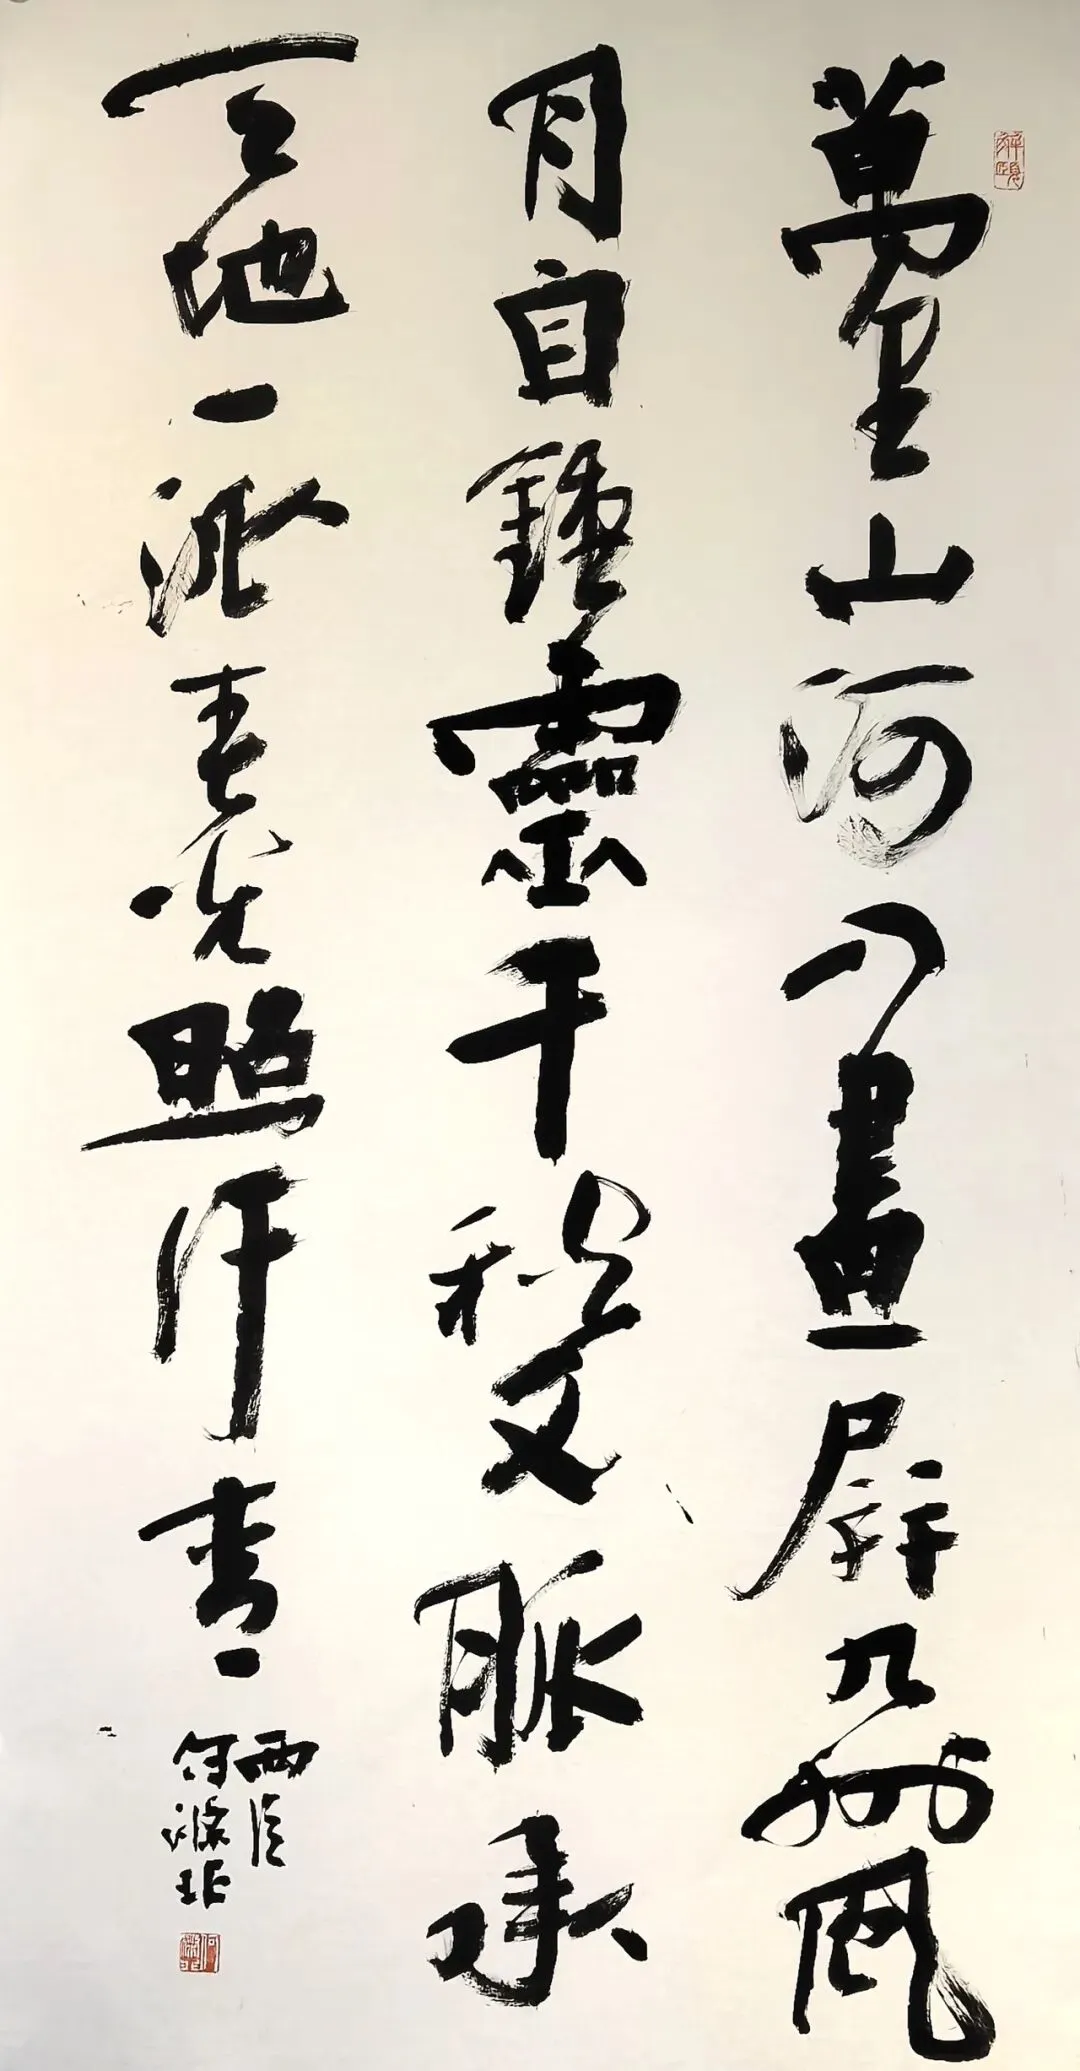 萬里山河入畫屏九州風
月自鍾靈千秋文脈承
天地一派春光照汗青
何滌非